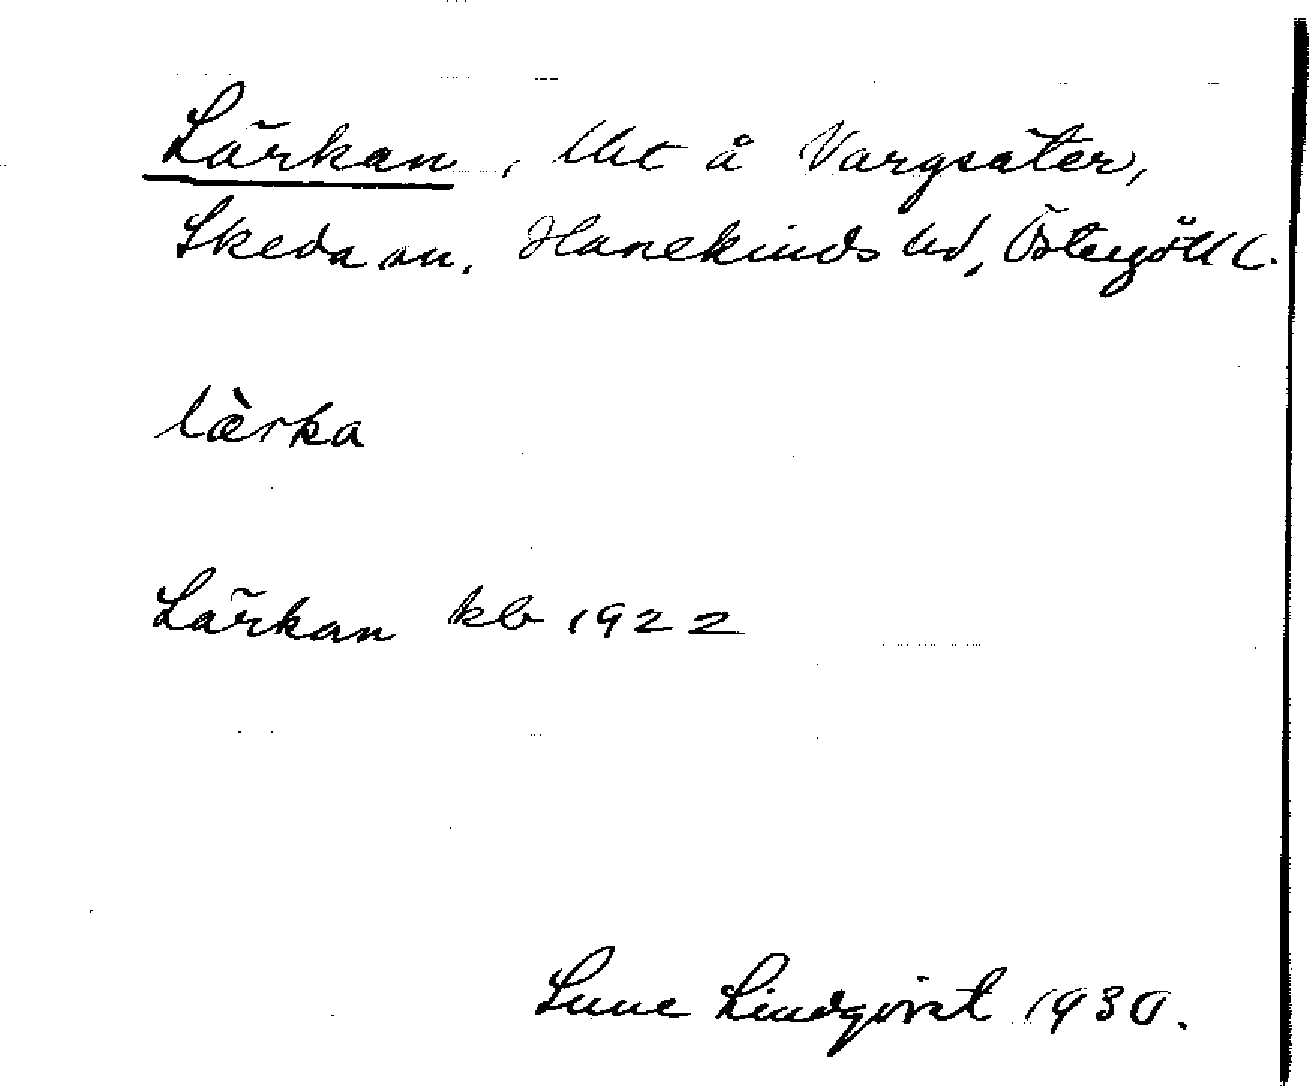 Lärkan, lht å Vargsäter,
Skeda sn. Hanekinds hd, Östergötl l.
lærka
Lärkan kb 1922
Sune Lindqvist 1930.